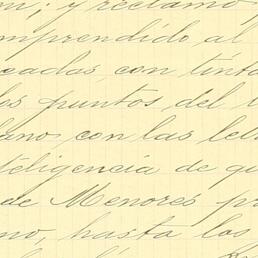 ; y reclamo
mprendido al
gadas con tinta
los puntos del
lano con las let
teligencia de qu
de Menores pr
no, hasta los